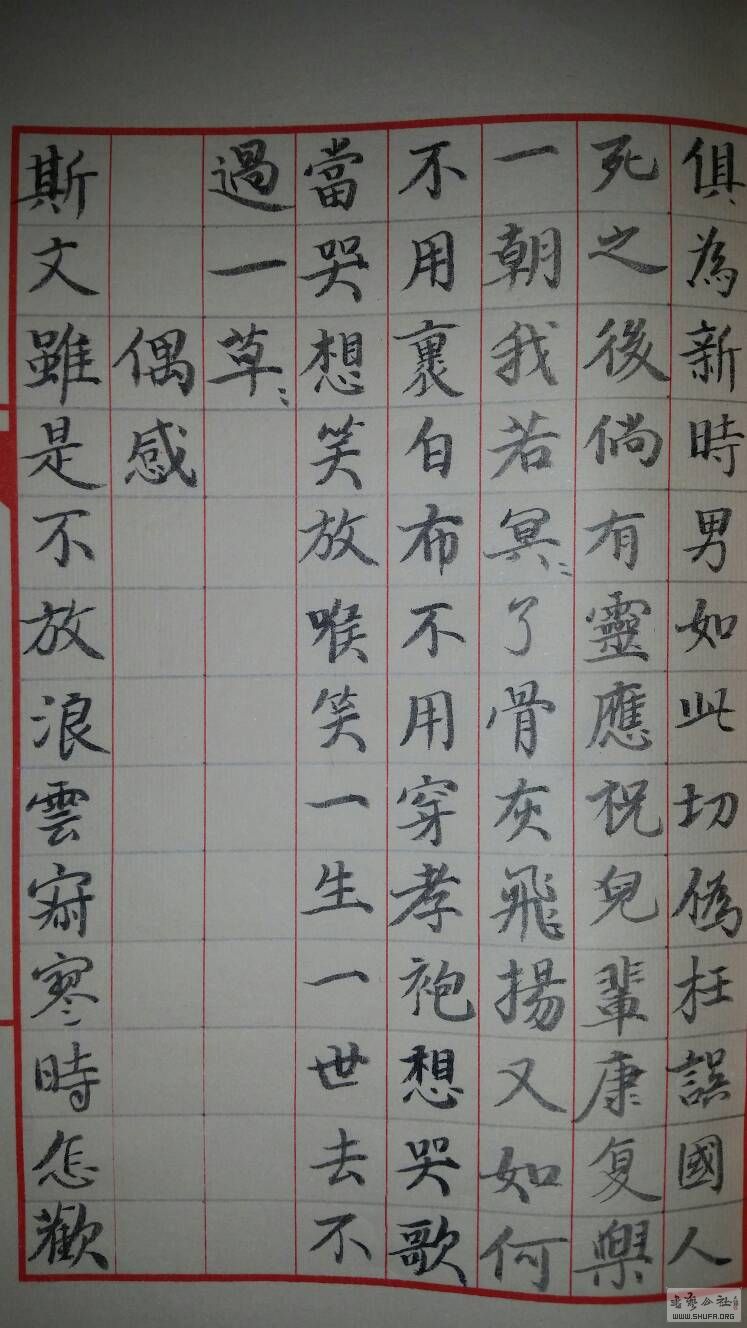 俱為新時男如此切偽枉誤國人
死之後倘有靈應祝兒輩康复
一朝我若冥〻了骨灰飛揚又如何
不用裹白布不用穿孝袍想哭歌
當哭想笑放喉笑一生一世去不
過一草〻
偶感
斯文雖是不放浪雲寒〻時怎歡
书艺公社
WWW.SHUFA.ORG